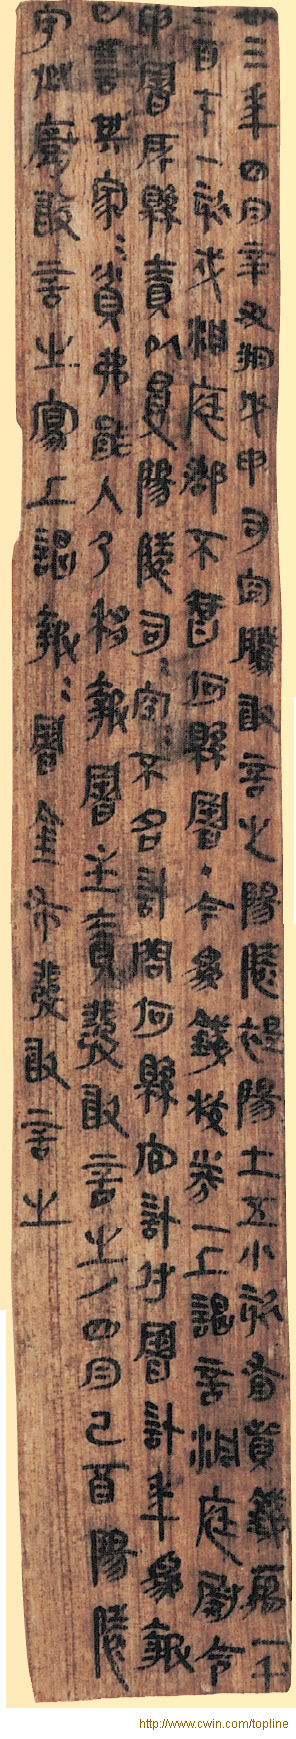 卅三年四月辛丑朔戊申司空騰敢言之陽陵褆陽士五小欬有貲錢萬一千
二百七十一欬戍洞庭郡不智何縣署·今為錢校券一上謁言洞庭尉令
署所縣責以受陽陵司=空=不名計問何縣官計付署計年為報
已訾其家=貧弗能入乃移報署主責發敢言之/四月己酉陽陵
守丞廚敢言之寫上謁報=署金布發敢言之
http://www.cwin.com/topline